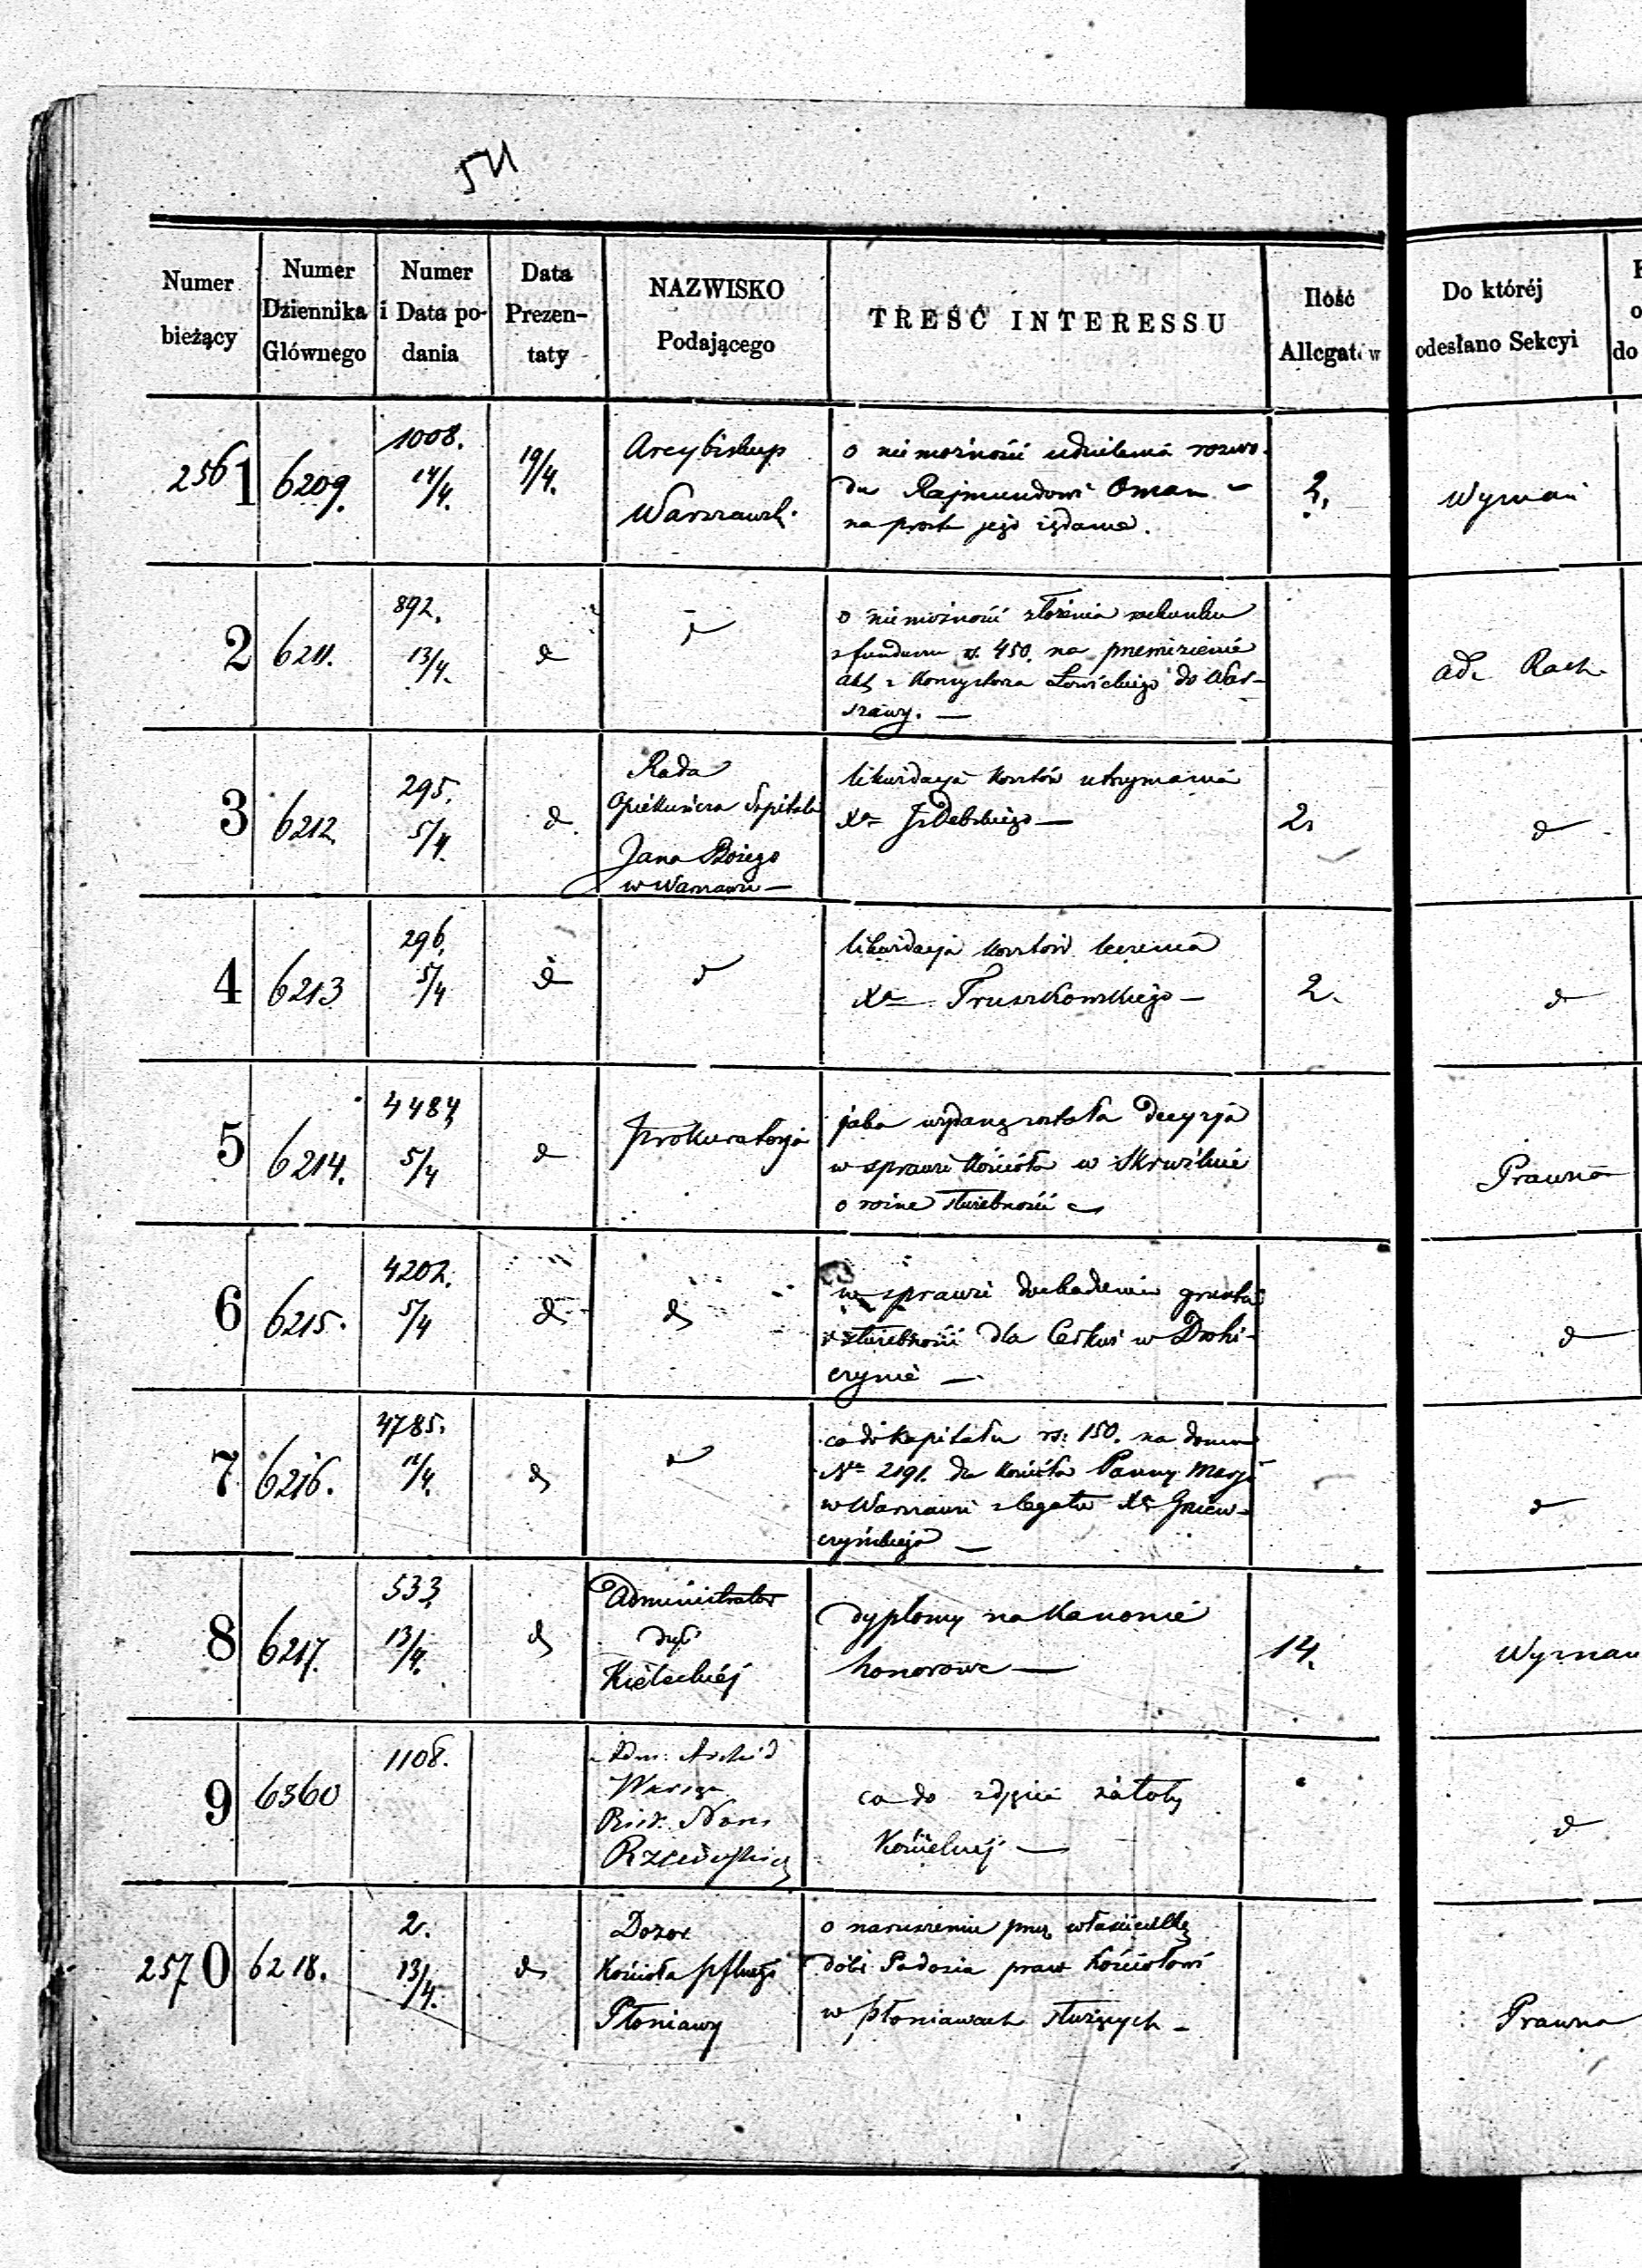 511
Numer bieżący
Numer Dziennika Głównego
Numer i Data podania
Data Prezentaty
NAZWISKO Podającego
TREŚĆ INTERESSU
Ilość Allegatów
Do któréj odesłano Sekcyi
2561
6209.
1008.
14/4.
19/4.
Arcybiskup
Warszawski
o niemożności udzielenia rozwo-
du Rajmundowi Oman
na proste jego żądanie.
2.
Wyznań
2
6211.
892.
13/4.
d
d
o niemożności złożenia rachunku
z funduszu rs. 450. na przeniesienie
akt z Konsystorza Łowickiego do War-
szawy. —
ad. Rach.
3
6212.
295.
5/4.
d
Rada
Opiekuńcza Szpitala
Jana Bożego
w Warszawie —
likwidacja kosztów utrzymania
Xa Izdebskiego —
2
d
4
6213
296.
5/4
d
d
likwidacja kosztów leczenia
Xa Truszkowskiego —
2.
d
5
6214.
4484
5/4
d
Prokuratorja
jaka wydaną została decyzja
w sprawie Kościoła w Skrwilnie
o różne służebności
Prawna
6
6215.
4202.
5/4
d
d
w sprawie dochodzenia gruntu
i służebności dla Cerkwi w Drohi-
czynie —
d
7
6216.
4785.
12/4.
d
d
co do kapitału rs: 150. na domu
Nr 2191. dla Kościoła Panny Marji
w Warszawie z legatu Xa Gniew-
czyńskiego —
d
8
6217.
533
13/4.
d
Administrator
dyec
Kieleckiéj
dyplomy na Kanonie
honorowe —
14.
Wyznań
9
6360
1108.
Adm: Archid
Warsza
Rzewuski
co do zdjęcia żałoby
Kościelnéj —
d
2570
6218.
2.
13/4.
d
Dozór
Kościoła pflnego
Płoniawy
o naruszeniu przez właścicielkę
dóbr Podosia praw Kościołowi
w Płoniawach służących —
Prawna